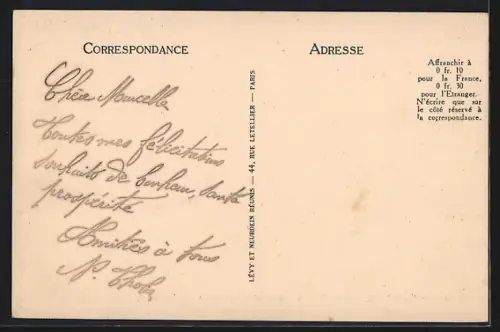 CORRESPONDANCE
Chère Marcelle
Toutes mes félicitations
souhaits de bonheur, santé
prospérité
Amitiés à tous
LÉVY ET NEURDEIN RÉUNIS — 44, RUE LETELLIER — PARIS
ADRESSE
Affranchir à
0 fr. 10
pour la France,
0 fr. 30
pour l'Étranger.
N'écrire que sur
le côté réservé à
la correspondance.